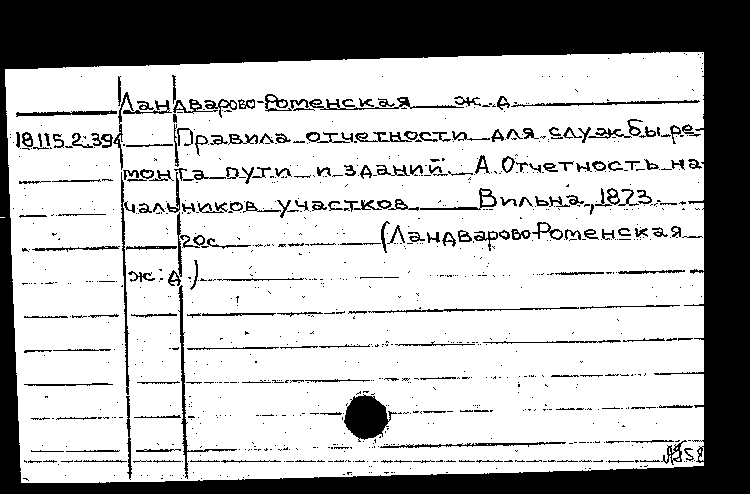 Ландварово-Роменская ж.д.
18.115.2.394 Правила отчетности для службы ре-
монта пути и зданий. А. Отчетность на-
чальников участков. Вильна, 1873.
20с. (Ландварово-Роменская
ж.д.)